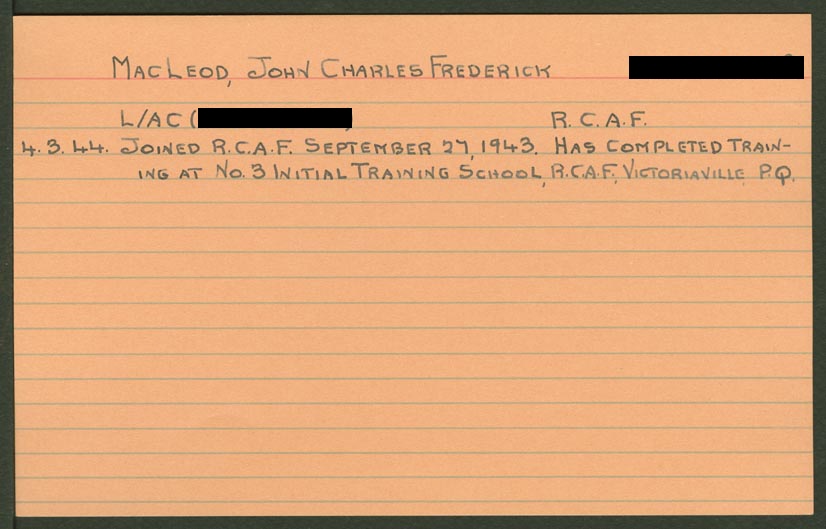 MacLeod, John Charles Frederick
L/AC ( R.C.A.F.
4.3.44. Joined R.C.A.F. September 27, 1943. Has completed train-
ing at No. 3 Initial Training School, R.C.A.F., Victoriaville, P.Q.